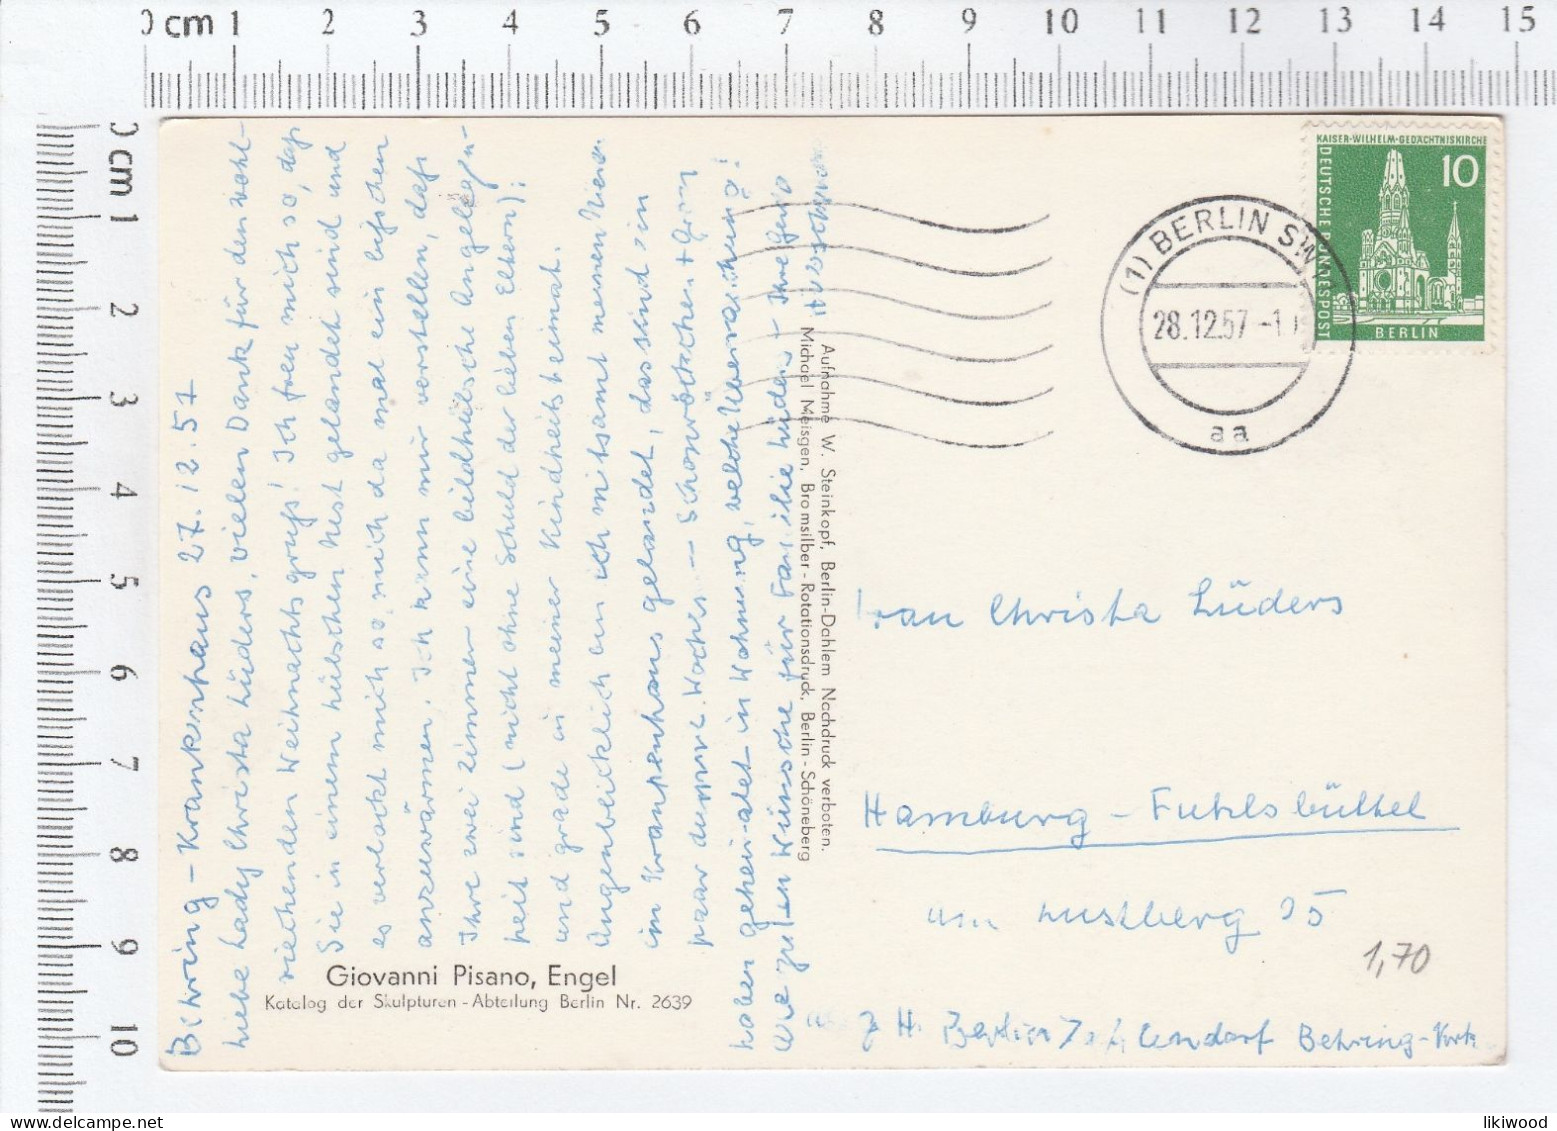 0 cm 1 2 3 4 5 6 7 8 9 10 11 12 13 14 15
0 cm 1 2 3 4 5 6 7 8 9 10
KAISER-WILHELM-GEDÄCHTNISKIRCHE
10
DEUTSCHE BUNDESPOST
BERLIN
(1) BERLIN SW
28.12.57 -1
aa
Behring-Krankenhaus 27.12.57
Liebe Lady Christa Lüders, vielen Dank für den wohl-
riechenden Weihnachtsgruß! Ich freu mich so, daß
Sie in einem hübschen Nest gelandet sind und
es verlockt mich so mich da mal ein bißchen
anzuwärmen. Ich kann mir vorstellen, daß
Ihre zwei Zimmer eine bildhübsche Angelegen-
heit sind (nicht ohne Schuld der lieben Eltern);
und grade in meiner Kindheitsheimat.
Augenblicklich bin ich mitsamt meinen Nieren
im Krankenhaus gelandet, das sind so'n
paar dumme Wochen --
haben geheiratet in Wohnung, welche Überraschung!
Alle guten Wünsche für Familie Lüders - Ihre
Aufnahme W. Steinkopf, Berlin-Dahlem Nachdruck verboten.
Michael Meisgen, Bromsilber-Rotationsdruck, Berlin-Schöneberg
Giovanni Pisano, Engel
Katalog der Skulpturen-Abteilung Berlin Nr. 2639
Frau Christa Lüders
Hamburg - Fuhlsbüttel
am Lustberg 25
1,70
z. H. Berlin Zehlendorf Behring-Krkh.
likiwood